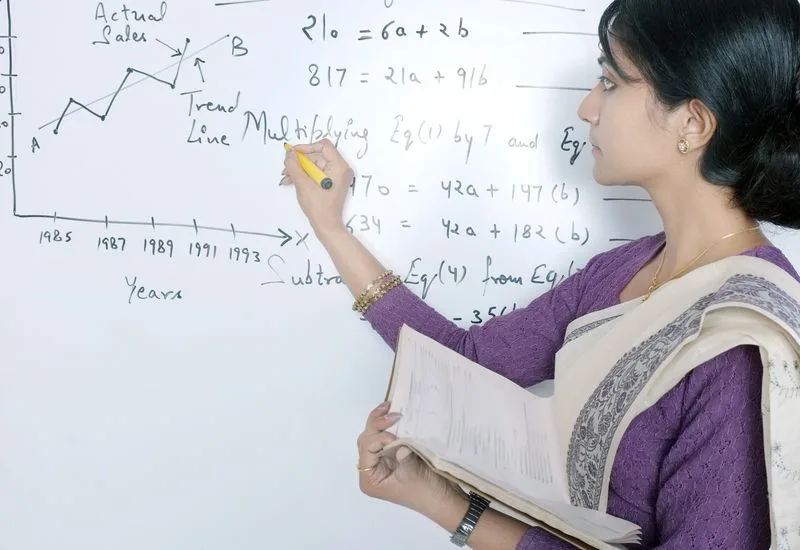 Actual
Sales
B
Trend
Line
A
20
X
1985 1987 1989 1991 1993
Years
210 = 6a + 2b
817 = 21a + 91b
Multiplying Eq(1) by 7 and Eq
470 = 42a + 147(b)
634 = 42a + 182(b)
Subtra Eq(4) from Eq(
- 35(b